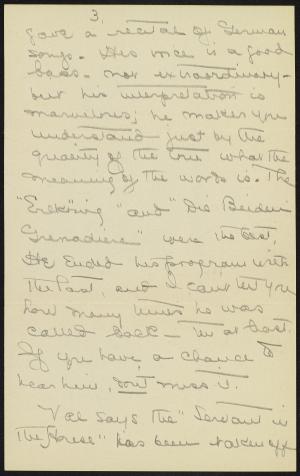 3.
gave a recital of German
songs. His voice is a good
bass - not extraordinary -
but his interpretation is
marvelous; he makes you
understand just by the
quality of the tone what the
meaning of the words is. The
"Erlkönig" and "Die Beiden
Grenadiere" were the best.
He ended his program with
the last, and I can't tell you
how many times he was
called back - at least.
If you have a chance to
hear him, don't miss it.
Val says the "Servant in
the House" has been taken off